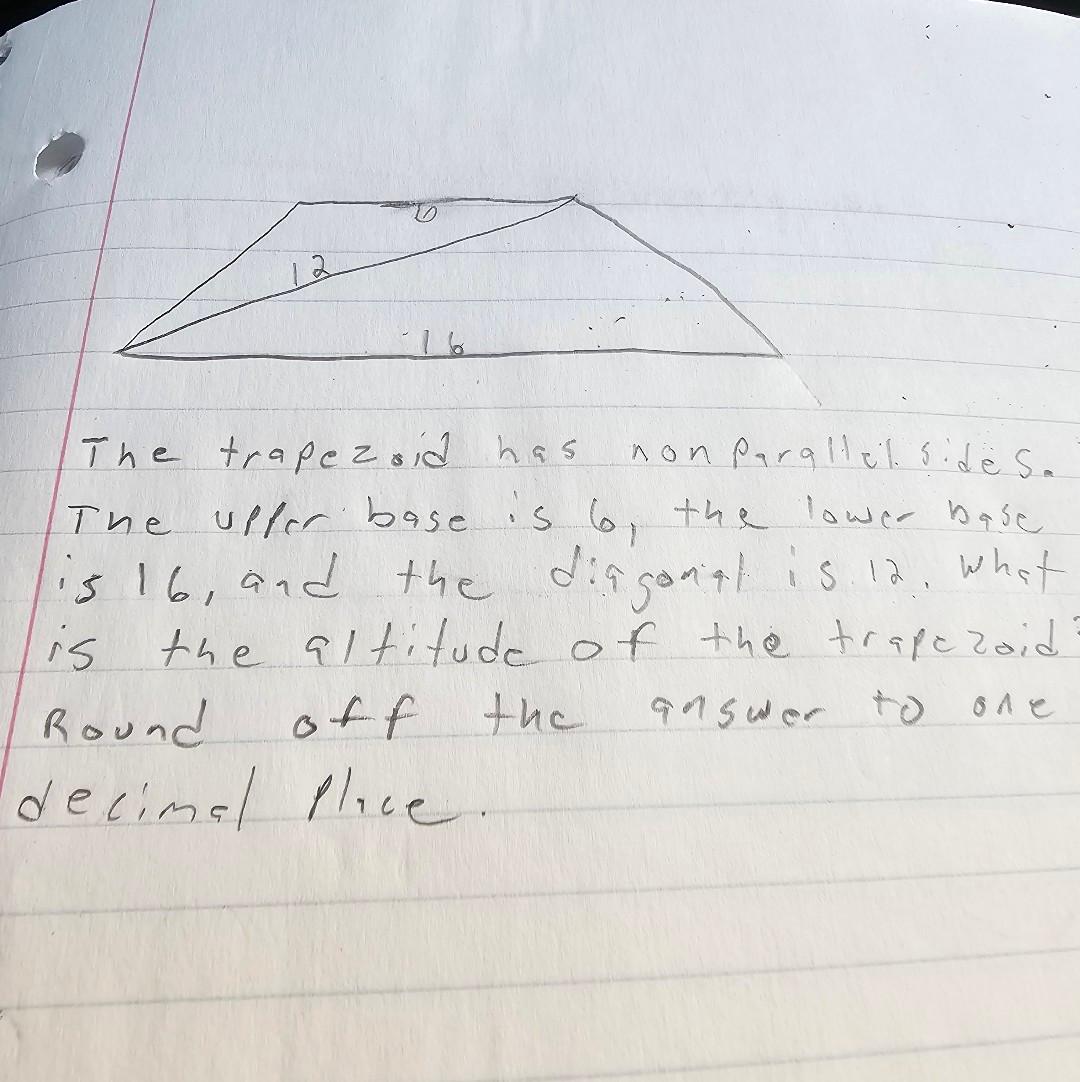 6
12
16
The trapezoid has nonparallel sides.
The upper base is 6, the lower base
is 16, and the diagonal is 12. What
is the altitude of the trapezoid?
Round off the answer to one
decimal place.